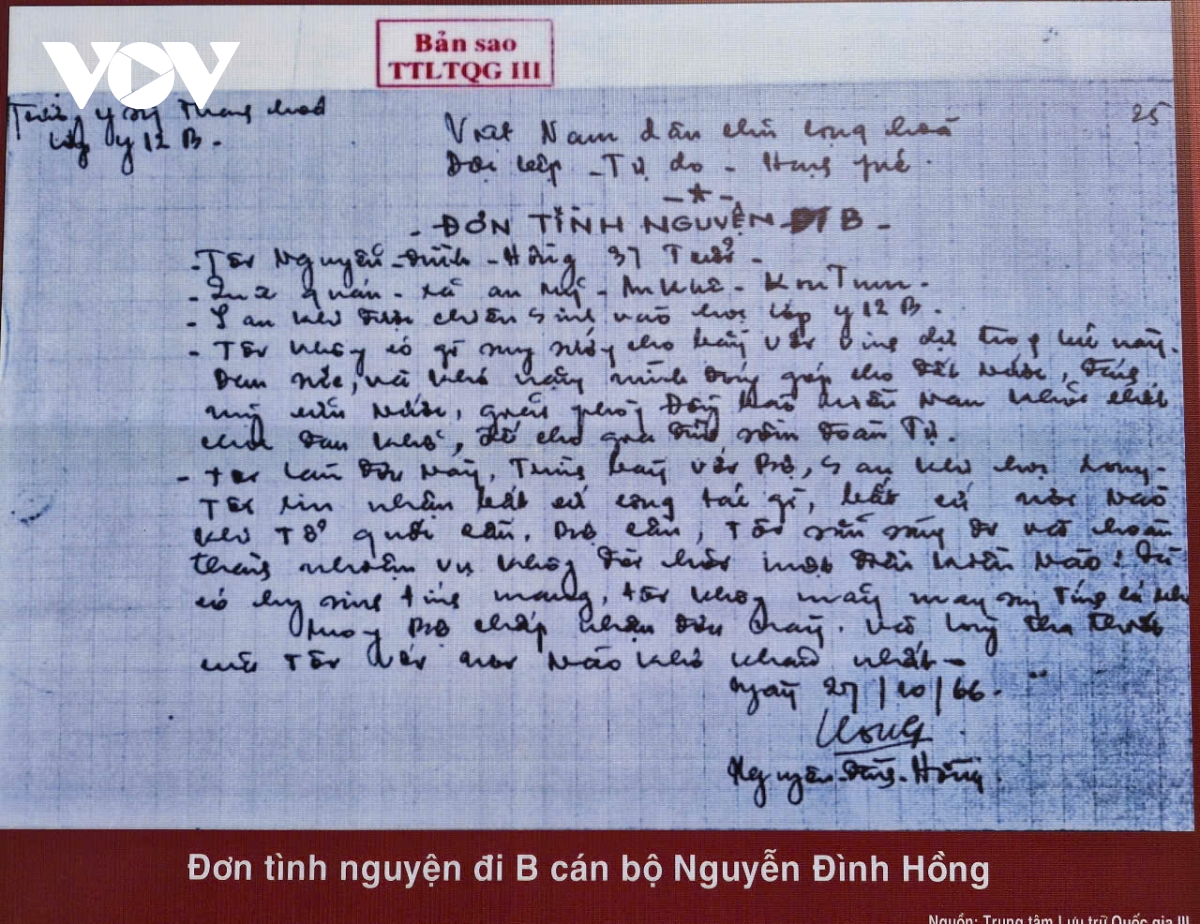 VOV
Bản sao
TTLTQG III
25
Trường y sỹ Thanh hoá
Lớp y 12 B.
Việt Nam dân chủ cộng hoà
Độc lập - Tự do - Hạnh phúc.
- ĐƠN TÌNH NGUYỆN ĐI B -
- Tôi Nguyễn - đình - Hồng 37 Tuổi -
- quán - xã an mỹ - An Khê - KonTum -
- Sau khi được chiêu sinh vào học lớp y 12 B.
- Tôi không có gì suy nghĩ cho bằng với vinh dự trong lúc này.
Đem sức, và khả năng mình đóng góp cho đất nước, đánh
mỹ cứu nước, giải phóng Đồng bào miền nam khỏi chết
chóc đau khổ, để cho gia đình sớm đoàn Tụ.
- tôi làm đơn này, Trình bày với Bộ, Sau khi học xong -
Tôi xin nhận bất cứ công tác gì, bất cứ nơi nào
khi Tổ quốc cần, Bộ cần, Tôi sẵn sàng đi và hoàn
thành nhiệm vụ không đòi hỏi một điều kiện nào! Dù
có hy sinh tính mạng, tôi không mảy may suy tính cá nhân
Mong Bộ chấp nhận đơn này. Và lòng tha thiết
của Tôi với nơi nào khó khăn nhất -
ngày 27/10/66.
Hong
Nguyễn - đình - Hồng
Đơn tình nguyện đi B cán bộ Nguyễn Đình Hồng
Nguồn: Trung tâm Lưu trữ Quốc gia III